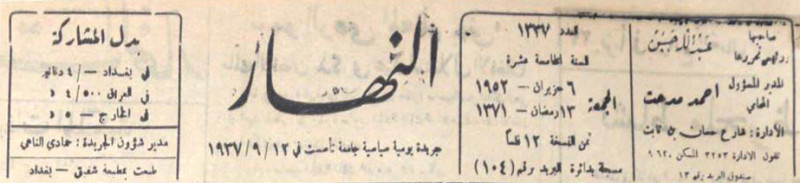 صاحبها
ورئيس تحريرها
المدير المسؤول
المحامي
احمد مدحت
الادارة: شارع حسان بن ثابت
تلفون الادارة ٣٢٥٣ المسكن ٩٦٢٠
صندوق البريد رقم ١٣
العدد ١٣٣٧
السنة الخامسة عشرة
الجمعة
٦ حزيران - ١٩٥٢
١٣ رمضان - ١٣٧١
ثمن النسخة ١٢ فلساً
مسجلة بدائرة البريد رقم (١٠٤)
النهار
جريدة يومية سياسية جامعة تأسست في ١٩٣٧/٩/١٢
بدل المشاركة
في بغداد -/ ٤ دنانير
في العراق ٥٠٠/ ٤ د
في الخارج -/ ٩ د
مدير شؤون الجريدة: حمادي الناهي
طبعت بمطبعة شفيق - بغداد